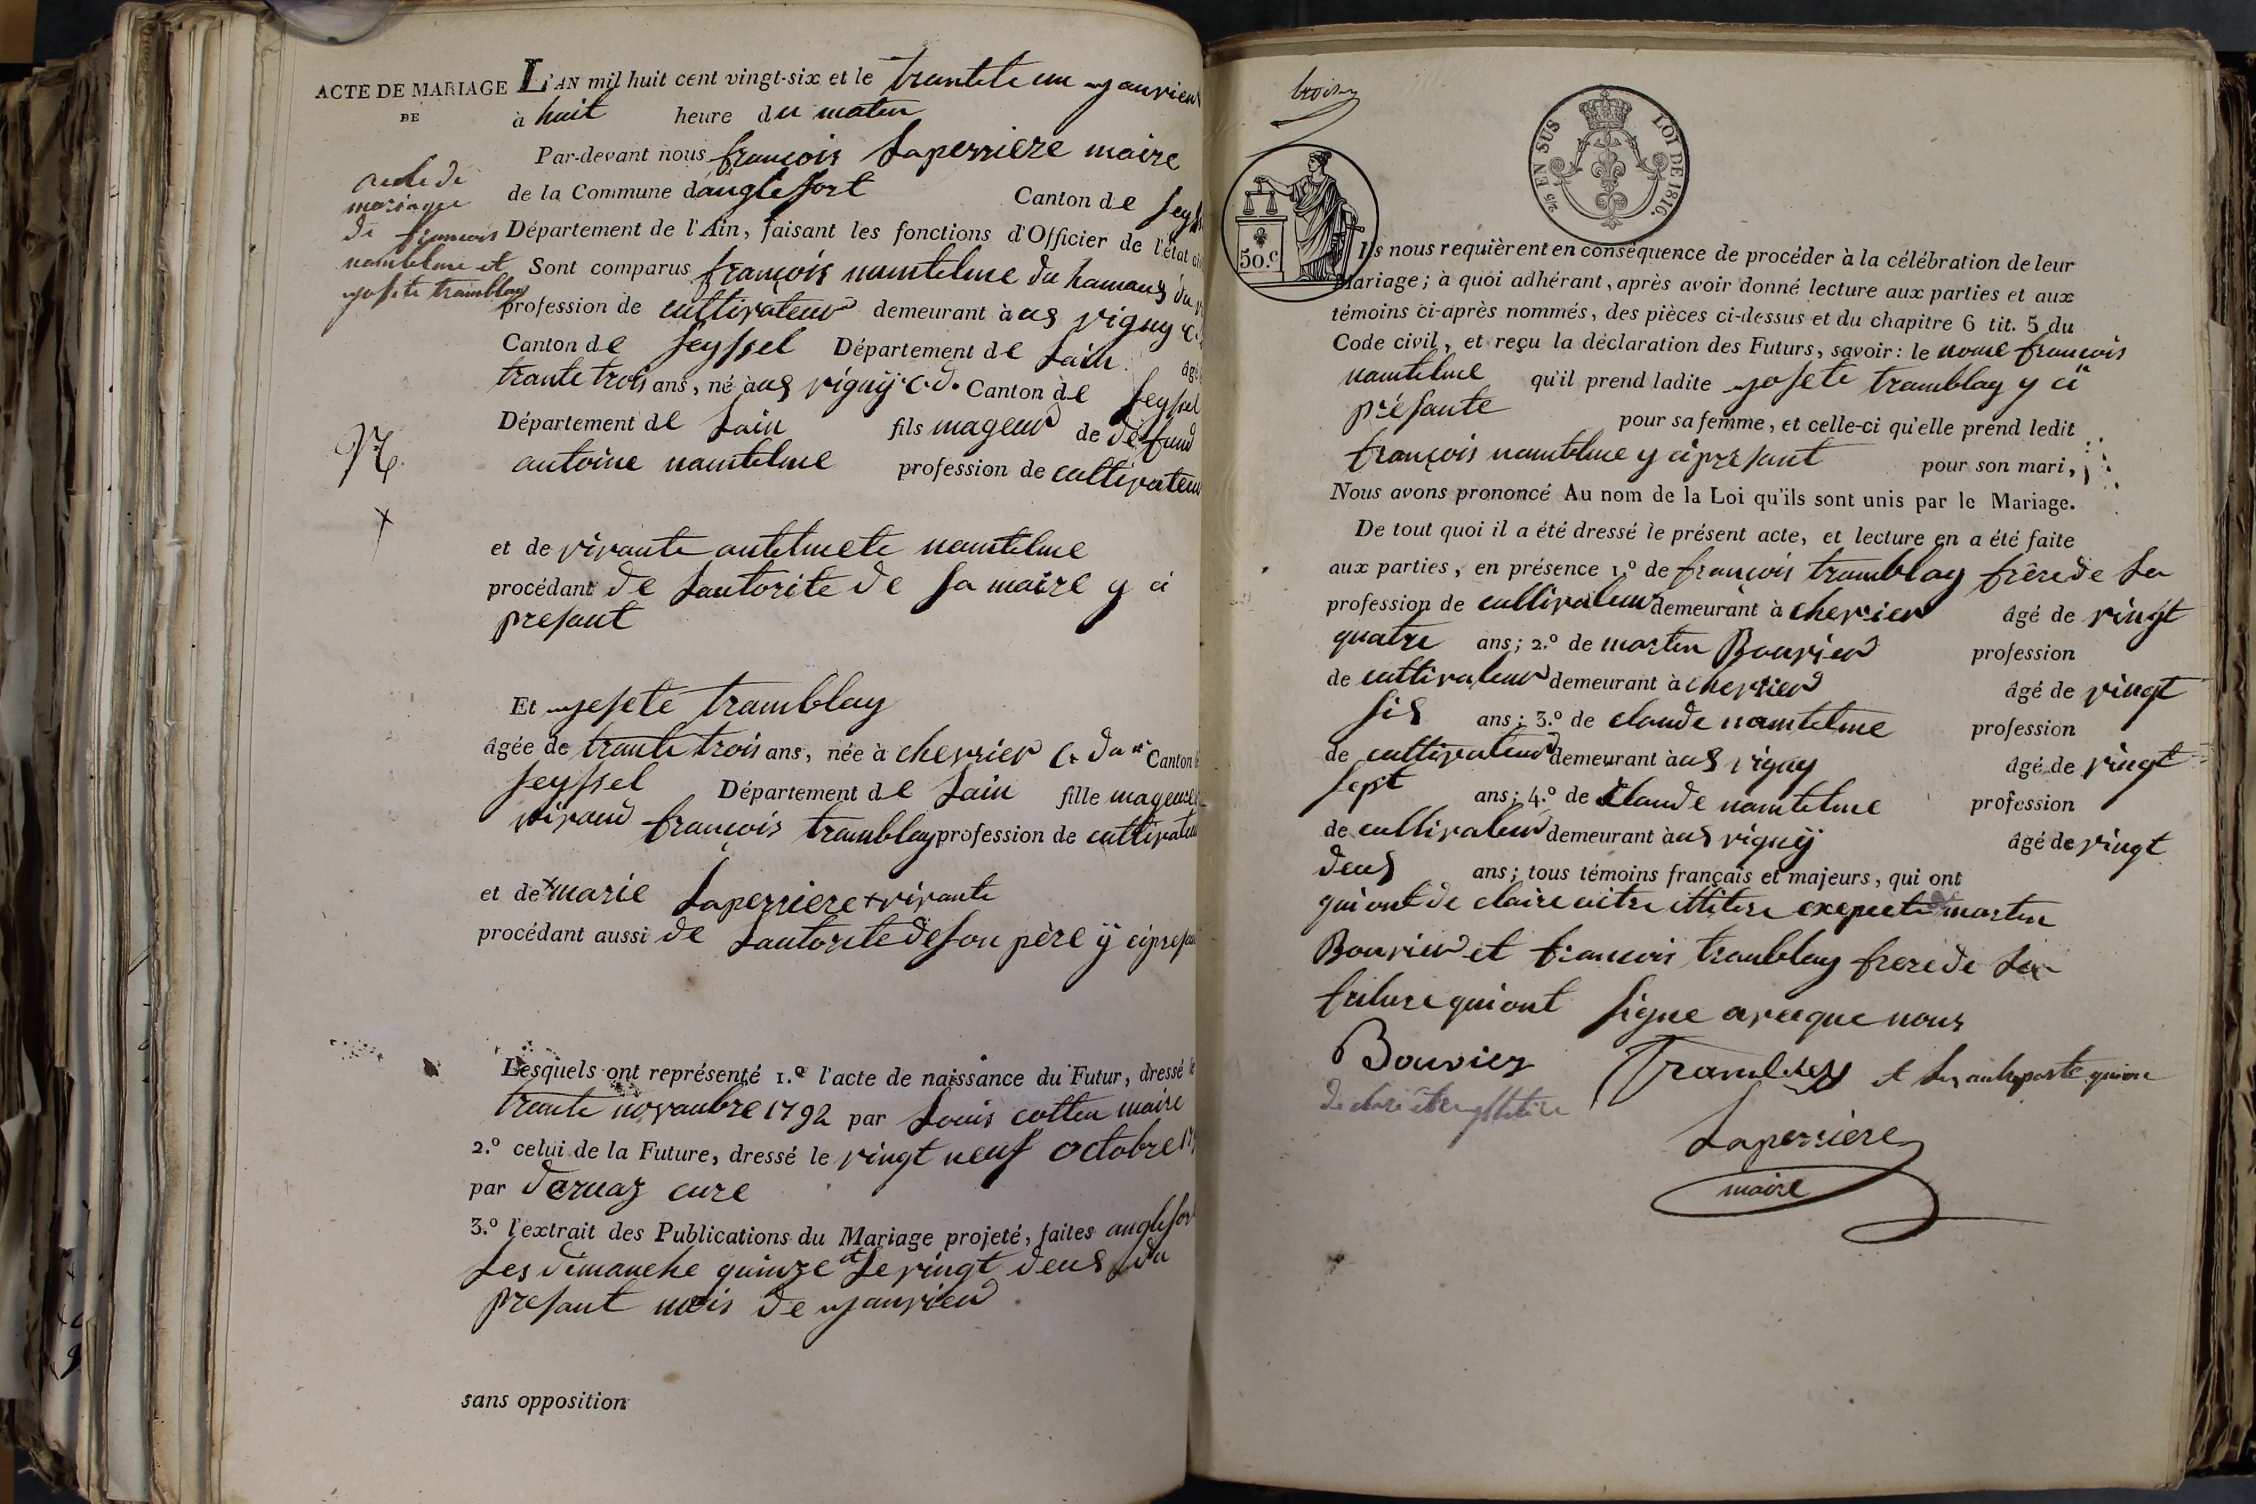 ACTE DE MARIAGE
DE
acte de
mariage
de francois
namtelme et
josete tramblay
L'AN mil huit cent vingt-six et le trantete un janvier
à huit heure du matin
Par-devant nous françois Laperriere maire
de la Commune d'anglefort Canton de
Département de l'Ain, faisant les fonctions d'Officier de l'état
Sont comparus françois namtelme du hamaux du
profession de cultivateur demeurant à aus vigny
Canton de seyssel Département de Lain
trante trois ans, né à aus vigny c.d. Canton de seyssel
Département de Lain fils mageur de défund
antoine namtelme profession de cultivateur
et de vivante antelmete namtelme
procédant de Lautorite de sa maire y ci
presant
Et josete tramblay
âgée de trante trois ans, née à chevrier c. du Canton
seyssel Département de Lain fille mageure
vivand françois tramblay profession de cultivateur
et de marie Laperriere vivante
procédant aussi de Lautorite de son père ÿ ci presa
Lesquels ont représenté 1.º l'acte de naissance du Futur, dressé le
trante novanbre 1792 par Louis cottin maire
2.º celui de la Future, dressé le vingt neuf octobre
par dernaz cure
3.º l'extrait des Publications du Mariage projeté, faites anglefor
Les dimanche quinze et Le vingt deus du
presant mois de janvier
sans opposition
trois
5/10 EN SUS LOI DE 1816.
50.c
Ils nous requièrent en conséquence de procéder à la célébration de leur
Mariage; à quoi adhérant, après avoir donné lecture aux parties et aux
témoins ci-après nommés, des pièces ci-dessus et du chapitre 6 tit. 5 du
Code civil, et reçu la déclaration des Futurs, savoir: le nome francois
namtelme qu'il prend ladite josete tramblay y ci
présante pour sa femme, et celle-ci qu'elle prend ledit
françois namtelme y ci presant pour son mari,
Nous avons prononcé Au nom de la Loi qu'ils sont unis par le Mariage.
De tout quoi il a été dressé le présent acte, et lecture en a été faite
aux parties, en présence 1.º de françois tramblay frère de La
profession de cultivateur demeurant à chevrier âgé de vingt
quatre ans; 2.º de martin Bouvier profession
de cultivateur demeurant à chevrier âgé de vingt
sis ans; 3.º de claude namtelme profession
de cultivateur demeurant à aus vigny âgé de vingt
sept ans; 4.º de claude namtelme profession
de cultivateur demeurant à aus vignÿ âgé de vingt
deus ans; tous témoins français et majeurs, qui ont
qui ont de claire aitre illitere exepeté martin
Bouvier et francois tramblay frere de La
future qui ont signe avecque nous
Bouvier Tramblay
Laperriere
maire